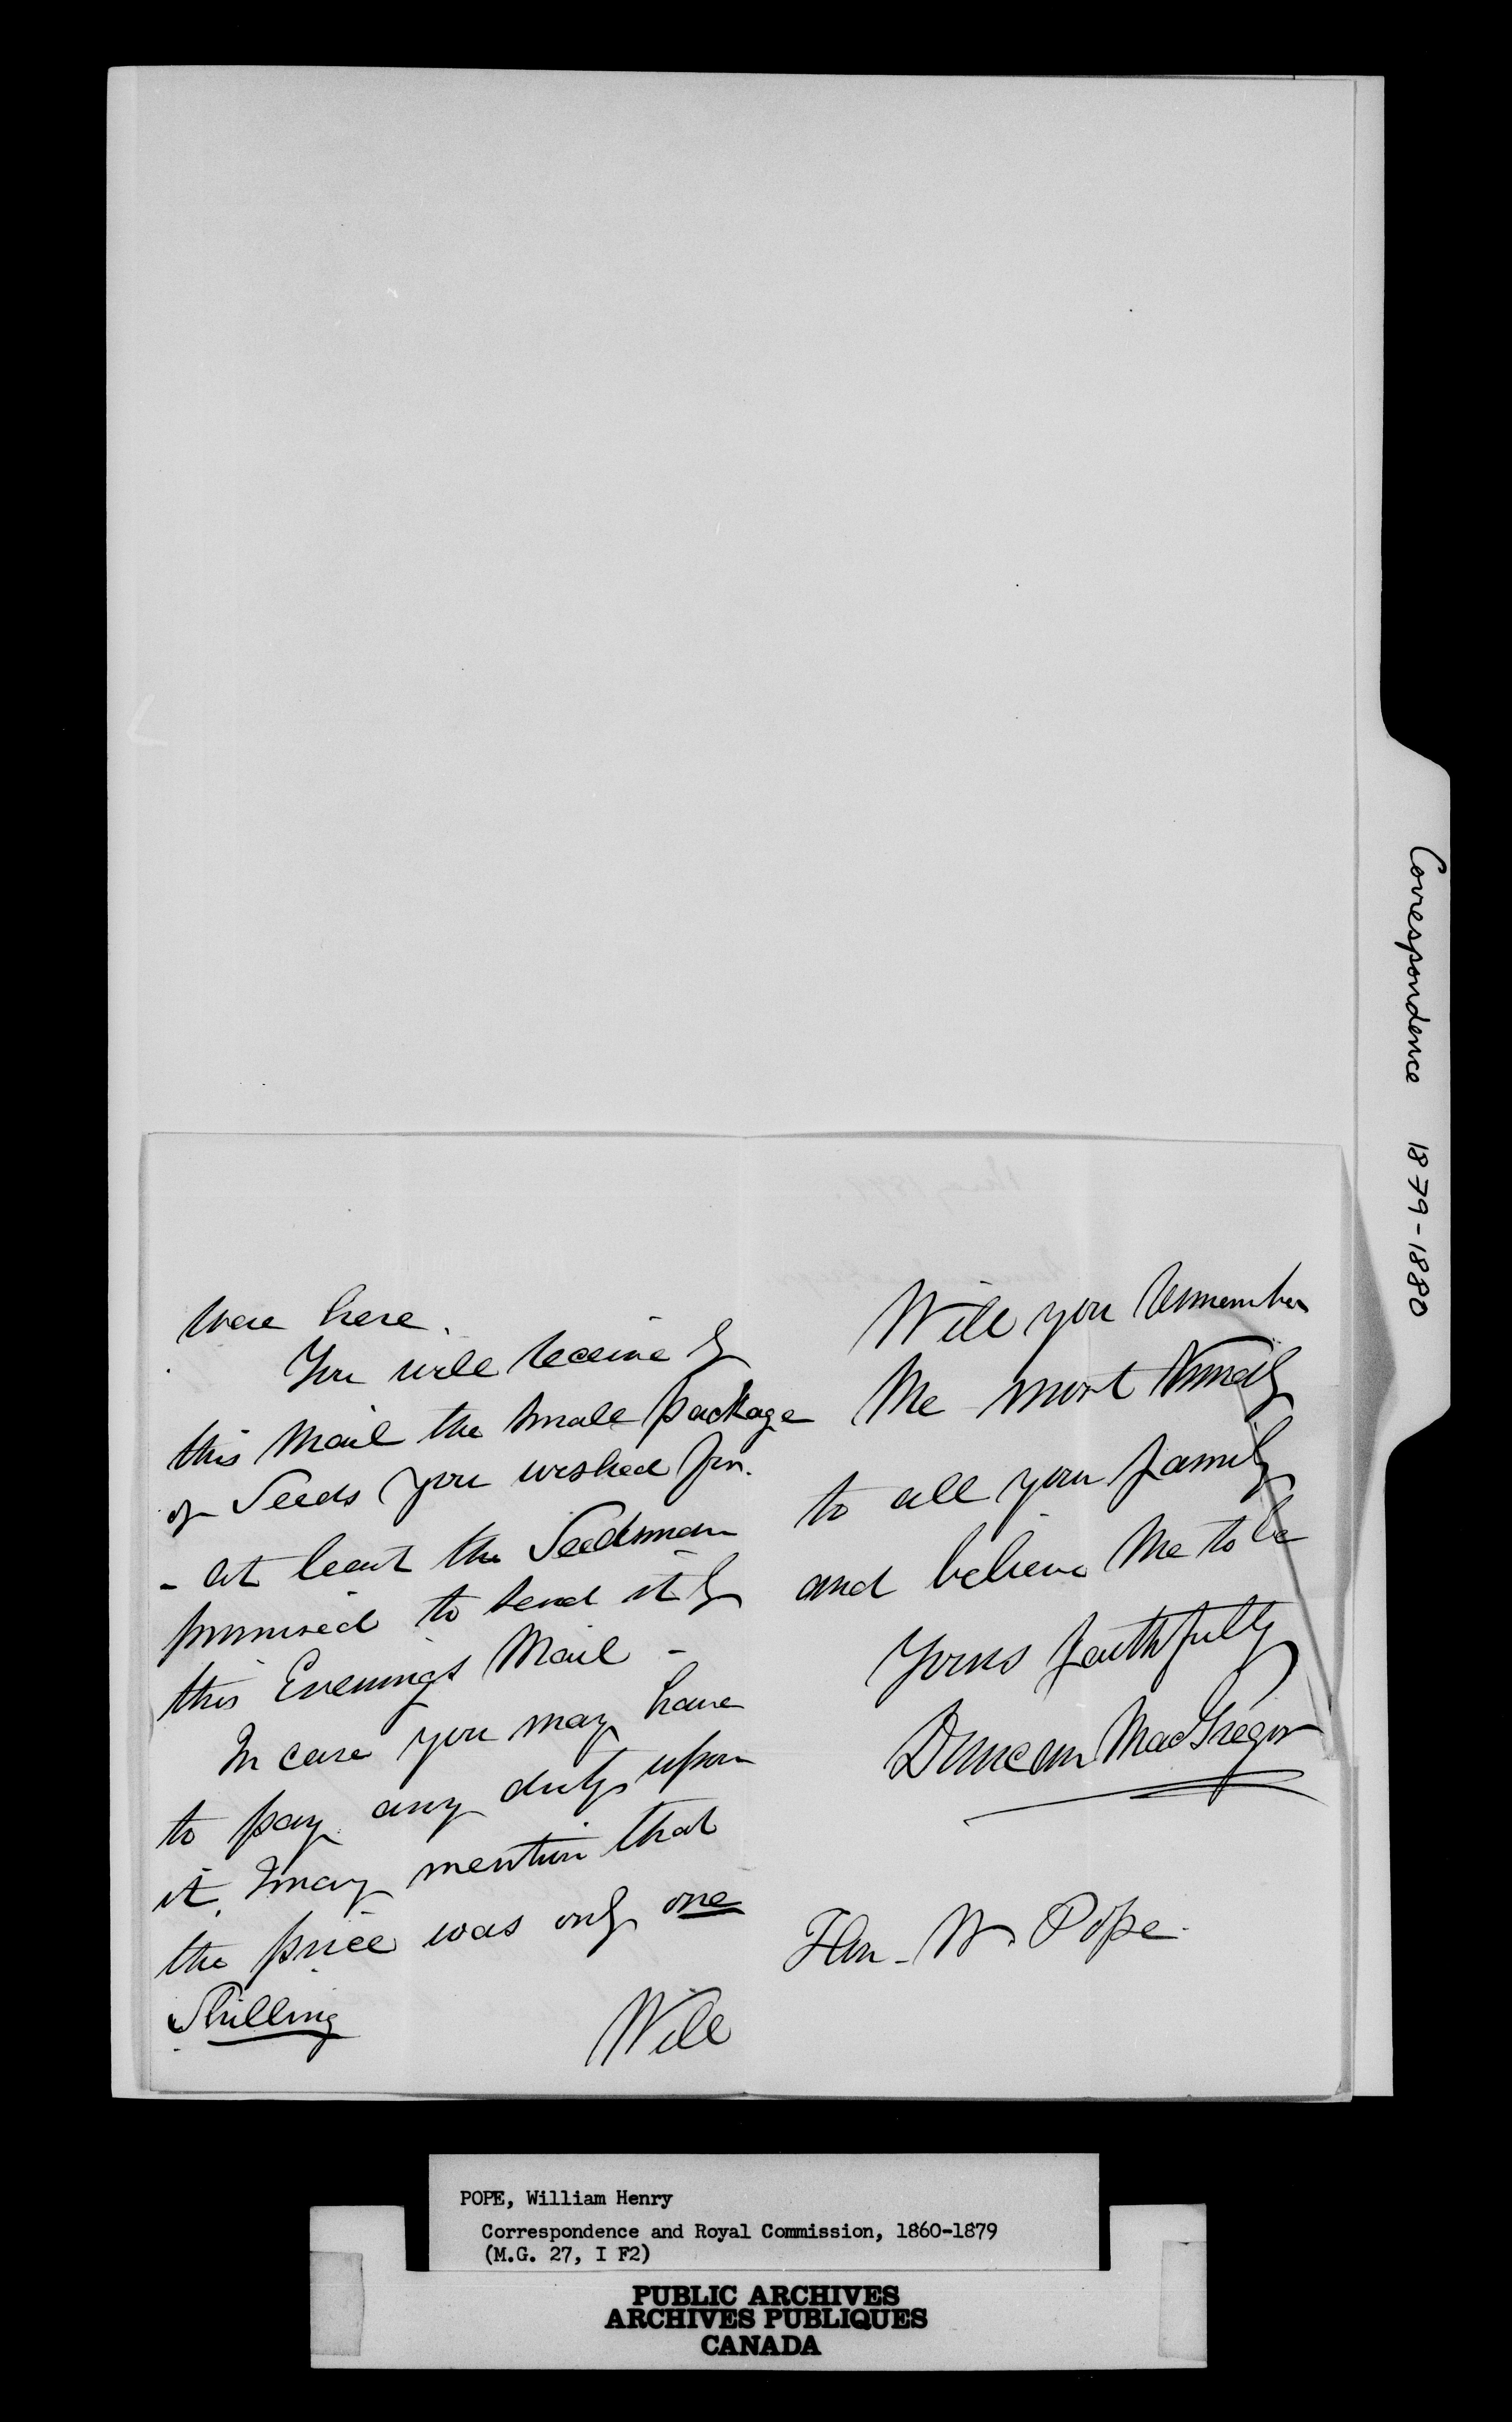 were here.
You will receive by
this Mail the small package
of Seeds you wished for.
- at least the Seedsman
promised to send it by
this Evenings Mail -
In case you may have
to pay any duty upon
it, I may mention that
the price was only one
Shilling
Will
Will you remember
Me most kindly
to all your family
and believe Me to be
Yours faithfully
Duncan MacGregor
Hon. W. Pope.
Correspondence 1879-1880
POPE, William Henry
Correspondence and Royal Commission, 1860-1879
(M.G. 27, I F2)
PUBLIC ARCHIVES
ARCHIVES PUBLIQUES
CANADA